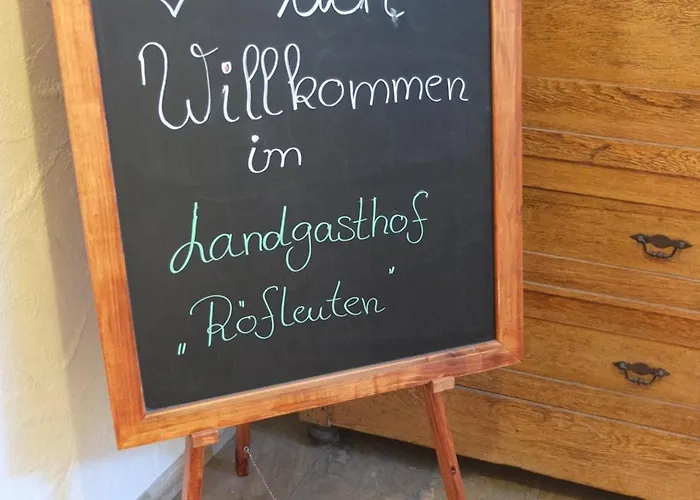 Willkommen
im
Landgasthof
„Röfleuten"